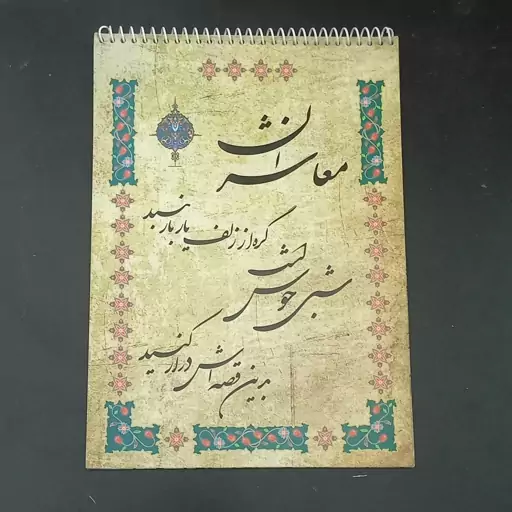 معاشران
گره از زلف یار باز کنید
شبی خوش است
بدین قصه اش دراز کنید